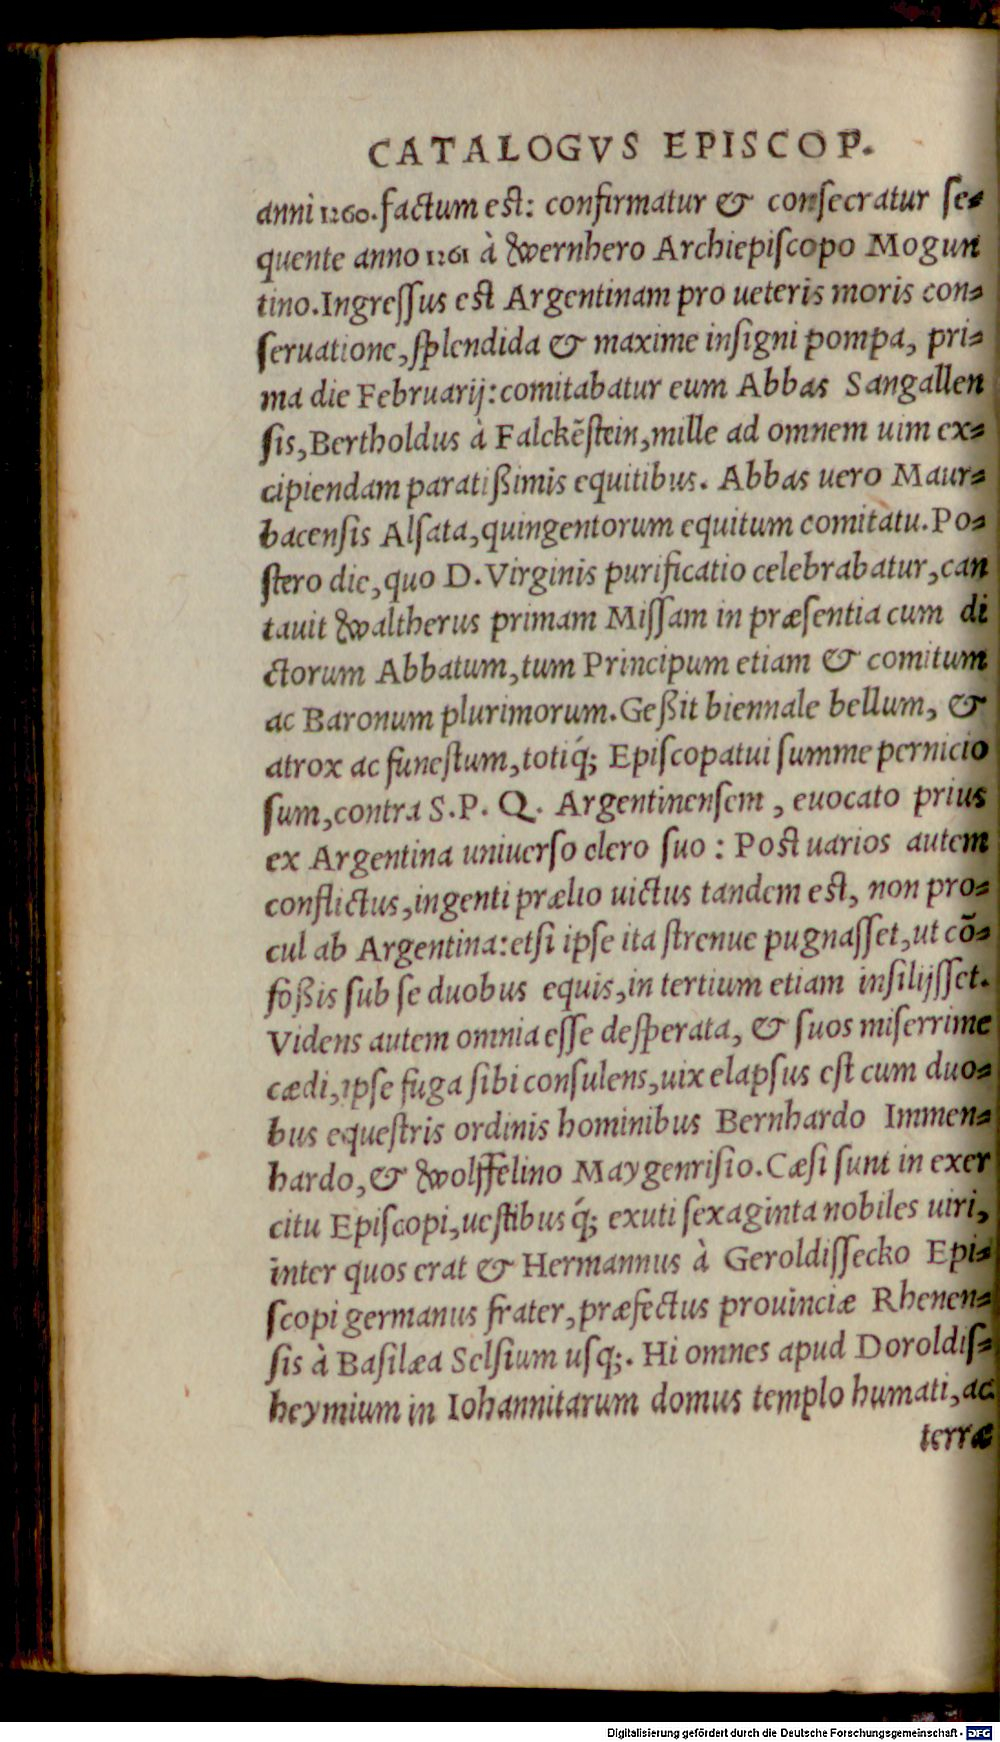 CATALOGVS EPISCOP.
anni 1260. factum est: confirmatur & consecratur se-
quente anno 1261 à Wernhero Archiepiscopo Mogun
tino. Ingressus est Argentinam pro ueteris moris con-
seruatione, splendida & maxime insigni pompa, pri-
ma die Februarij: comitabatur eum Abbas Sangallen
sis, Bertholdus à Falckēstein, mille ad omnem uim ex-
cipiendam paratißimis equitibus. Abbas uero Maur-
bacensis Alsata, quingentorum equitum comitatu. Po-
stero die, quo D. Virginis purificatio celebrabatur, can
tauit Waltherus primam Missam in præsentia cum di
ctorum Abbatum, tum Principum etiam & comitum
ac Baronum plurimorum. Geßit biennale bellum, &
atrox ac funestum, totiq́; Episcopatui summe pernicio
sum, contra S. P. Q. Argentinensem, euocato prius
ex Argentina uniuerso clero suo: Post uarios autem
conflictus, ingenti prælio uictus tandem est, non pro-
cul ab Argentina: etsi ipse ita strenue pugnasset, ut cō-
foßis sub se duobus equis, in tertium etiam insilijsset.
Videns autem omnia esse desperata, & suos miserrime
cædi, ipse fuga sibi consulens, uix elapsus est cum duo-
bus equestris ordinis hominibus Bernhardo Immen-
hardo, & Wolffelino Maygenrisio. Cæsi sunt in exer
citu Episcopi, uestibus q́; exuti sexaginta nobiles uiri,
inter quos erat & Hermannus à Geroldissecko Epi-
scopi germanus frater, præfectus prouinciæ Rhenen-
sis à Basilæa Selsium usq;. Hi omnes apud Doroldis-
heymium in Iohannitarum domus templo humati, ac
terræ
Digitalisierung gefördert durch die Deutsche Forschungsgemeinschaft - DFG